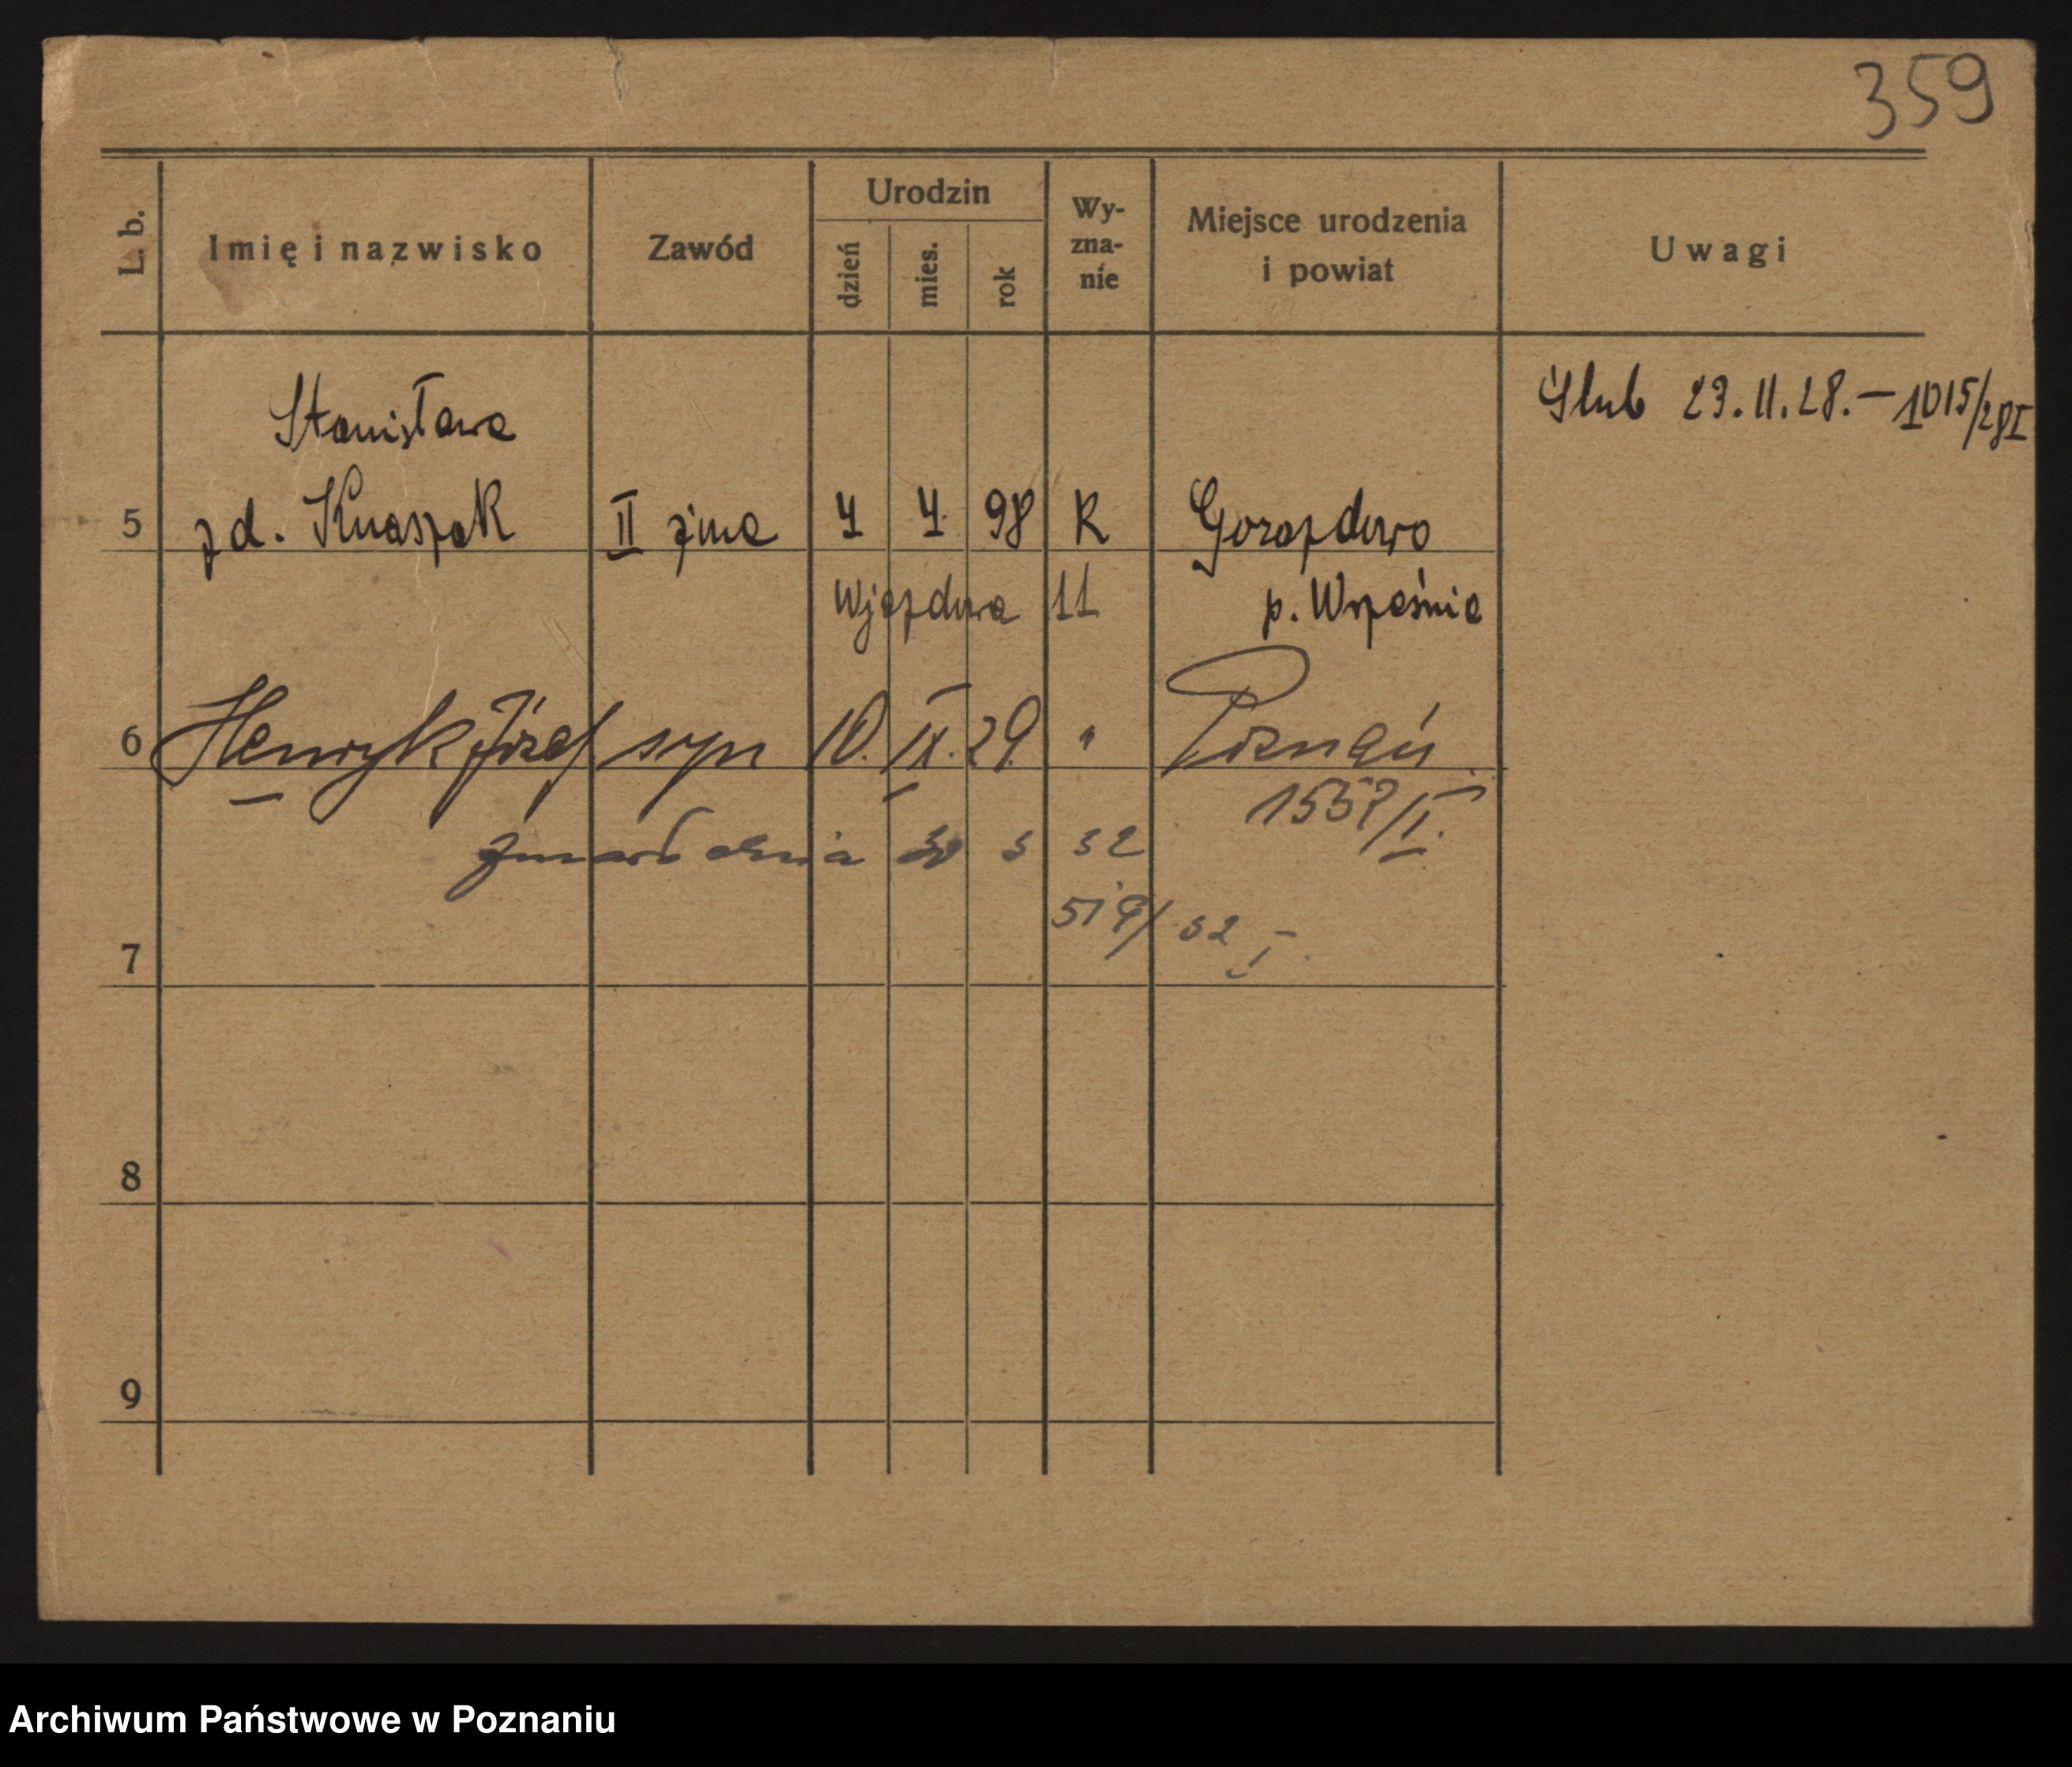 359
L. b.
Imię i nazwisko
Zawód
Urodzin
dzień
mies.
rok
Wy-
zna-
nie
Miejsce urodzenia
i powiat
Uwagi
Stanisława
Ślub 23.11.28.— 1015/28I
5 z d. Knaszak II żona 4 4. 98 K Gorazdowo
Wjazdowa 11 p. Września
6 Henryk Józef syn 10. IX. 29. " Poznań
1557/II.
zmarł dnia 30 3 32
519/32 I.
7
8
9
Archiwum Państwowe w Poznaniu